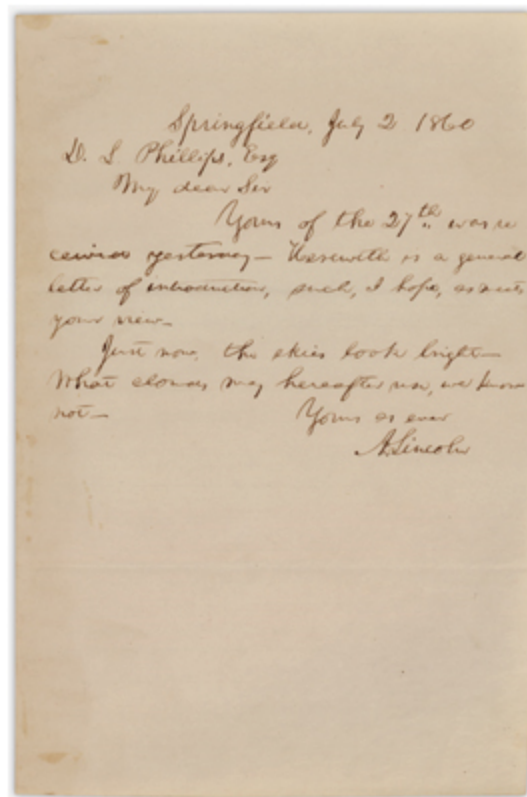 Springfield, July 2 1860
D. L. Phillips, Esq
My dear Sir
Yours of the 27th was re
ceived yesterday— Herewith is a general
letter of introduction, such, I hope, as meets
your view—
Just now, the skies look bright—
What clouds may hereafter rise, we know
not—
Yours as ever
A. Lincoln